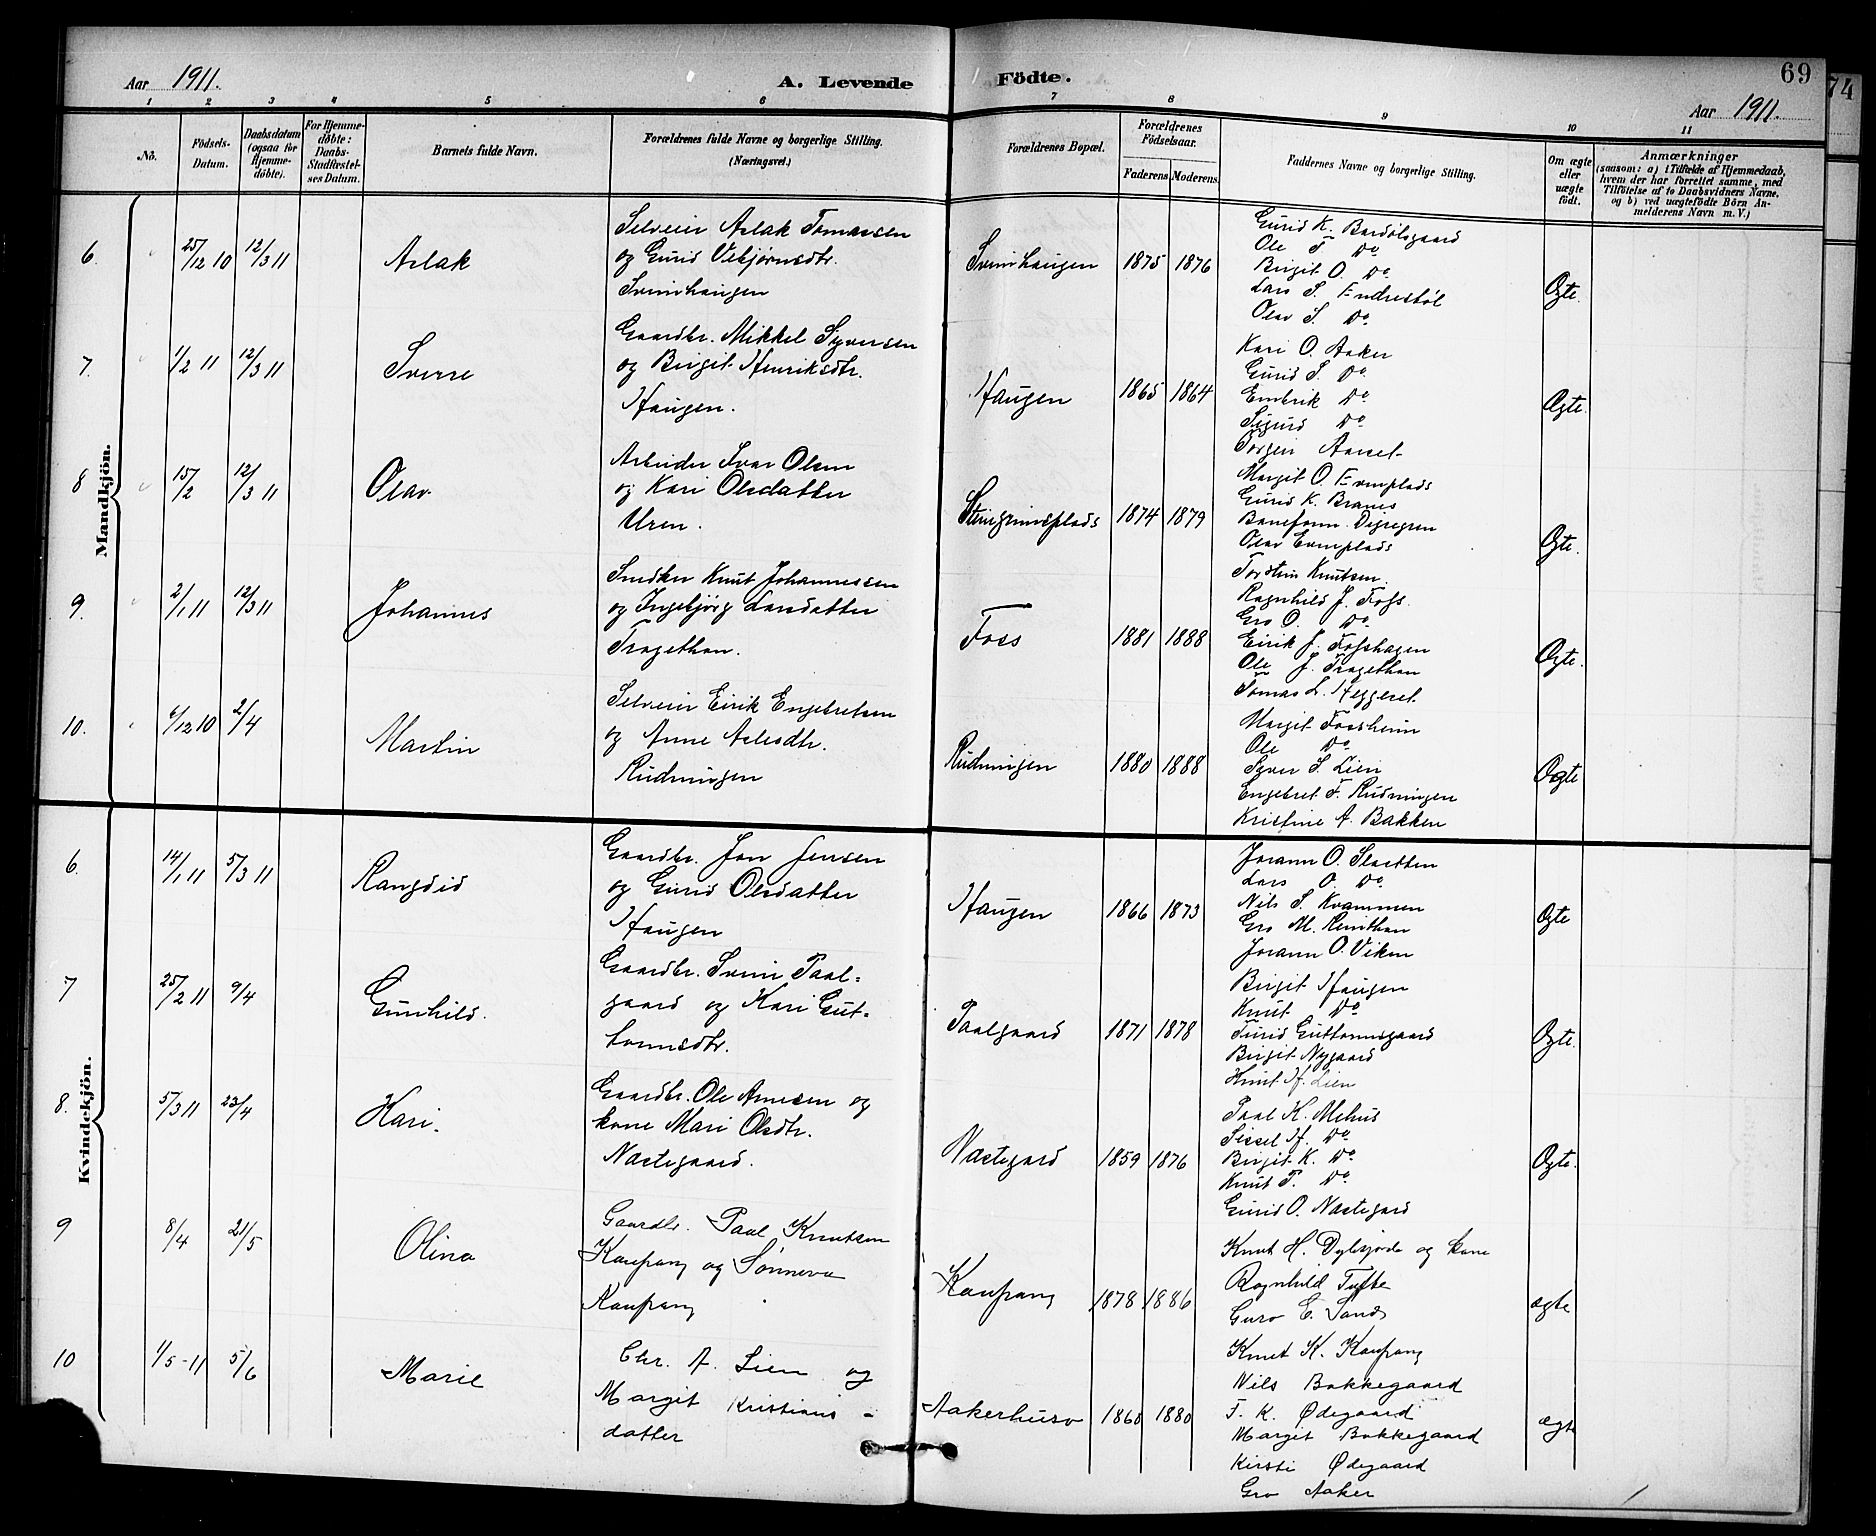 Aar 1911.
A. Levende Födte.
69
74
Aar 1911.
1 2 3 4 5 6 7 8 9 10 11
No.
Födsels-Datum.
Daabsdatum (ogsaa för Hjemme-döbte).
For Hjemme-döbte: Daabs-Stadfæstel-ses Datum.
Barnets fulde Navn.
Forældrenes fulde Navne og borgerlige Stilling. (Næringsvei.)
Forældrenes Bopæl.
Forældrenes Födselsaar.
Faderens Moderens.
Faddernes Navne og borgerlige Stilling.
Om ægte eller uægte födt.
Anmærkninger
(saasom: a) i Tilfælde af Hjemmedaab, hvem der har forrettet samme, med Tilföielse af to Daabsvidners Navne, og b) ved uægtefödte Börn An-melderens Navn m. V.)
Mandkjön.
6. 25/12 10 12/3 11 Aslak
Selveier Aslak Tomassen
og Gurid Vebjørnsdtr.
Sveinhaugen
Sveinhaugen 1875 1876
Gurid K. Bardølsgaard
Ole T. Do
Birgit O. Do
Lars S. Endrestøl
Olav S. Do
Ægte.
7. 1/2 11 12/3 11 Sverre
Gaardbr. Mikkel Syversen
og Birgit Henriksdtr.
Haugen.
Haugen 1865 1864
Kari O. Aaker
Gurid S. Do
Embrik Do
Sigurd Do
Torgen Aaset
Ægte.
8 15/2 12/3 11 Olav
Arbeider Ivar Olsen
og Kari Olsdatter
Uren.
Steingrimsplads 1874 1879
Margit O. Evenplads
Gurid K. Branes
Olav Evenplads
Torstein Knutsen.
Ægte.
9. 2/1 11 12/3 11 Johannes
Snedker Knut Johannessen
og Ingebjørg Larsdatter
Tragethon.
Foss 1881 1888
Ragnhild J. Foss.
Gro O. Do
Eirik J. Fosshagen
Ole J. Tragethon
Tomas L. Heggeset
Ægte.
10. 6/12 10 2/4 Martin
Selveier Eirik Engebretsen
og Anne Aslesdtr.
Rudningen
Rudningen 1880 1888
Margit Fossheim
Ole Do
Syver S. Lien
Engebret F. Rudningen
Kristine A. Bakken
Ægte
Kvindekjön.
6. 14/1 11 5/3 11 Rangdid
Gaardbr. Jon Jensen
og Gurid Olsdatter
Haugen
Haugen 1866 1873
Jorann O. Slaatten
Lars O. Do
Nils S. Kvammen
Gro M. Renithon
Jorann O. Viken
Ægte
7 25/2 11 9/4 Gunhild.
Gaardbr. Svein Paal-
gaard og Kari Gut-
tormsdtr.
Paalgaard 1871 1878
Birgit Haugen
Knut Do
Turid Guttormsgaard
Birgit Nygaard
Knut H. Lien
Ægte.
8. 5/3 11 23/4 Kari.
Gaardbr. Ole Arnesen og
kone Mari Olsdtr.
Nastegaard.
Nastegard 1859 1876
Paal K. Mehus
Sissel H. Do
Birgit K. Do
Knut T. Do
Gurid O. Nastegard
Ægte.
9 8/4 21/5 Olina
Gaardbr. Paal Knutsen
Kaupang og Sønneva
Kaupang
Kaupang 1878 1886
Knut H. Dylsjorde og kone
Ragnhild Tufte
Guro E. Sand
Knut K. Kaupang
ægte
10 1/5-11 5/6 Marie
Chr. A. Lien og
Margit Kristians-
datter
Aakerhuso 1868 1880
Nils Bakkegaard
T. K. Ødegaard
Margit Bakkegaard
Kirsti Ødegaard
Gro Aaker
ægte